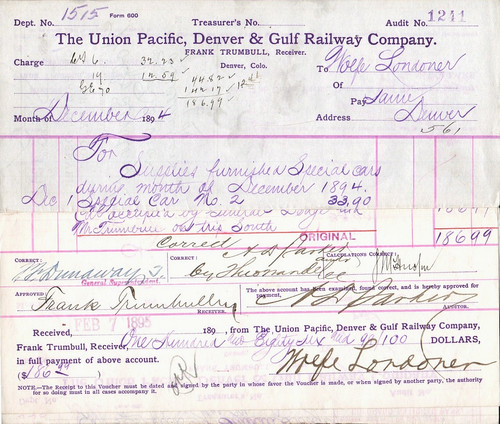 Dept. No. 1515 Form 600 Treasurer's No. Audit No. 1241
The Union Pacific, Denver & Gulf Railway Company.
FRANK TRUMBULL, Receiver.
Charge 32.23 Denver, Colo. To Wolfe Londoner
19 12.59 44.82
142.17 Of
70 186.99 Pay Same
Month of December 1894 Address Denver
561
For
Supplies furnished Special cars
during month of December 1894.
Dec 1 Special Car No. 2 33.90
occupied by General Dodge and
Mr Trumbull on trip South
ORIGINAL
186 99
Correct
CORRECT: CORRECT: CALCULATIONS CORRECT:
General Superintendent.
APPROVED: The above account has been examined, found correct, and is hereby approved for payment.
Frank Trumbull
RECEIVER. AUDITOR.
FEB 7 1895
Received, 189 , from The Union Pacific, Denver & Gulf Railway Company,
Frank Trumbull, Receiver One Hundred and Eighty Six and 99/100 DOLLARS,
in full payment of above account.
($186 99) Wolfe Londoner
NOTE.—The Receipt to this Voucher must be dated and signed by the party in whose favor the Voucher is made, or when signed by another party, the authority
for so doing must in all cases accompany it.